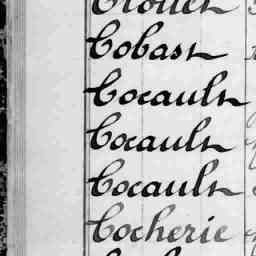 Cobast
Cocault
Cocault
Cocault
Cocherie